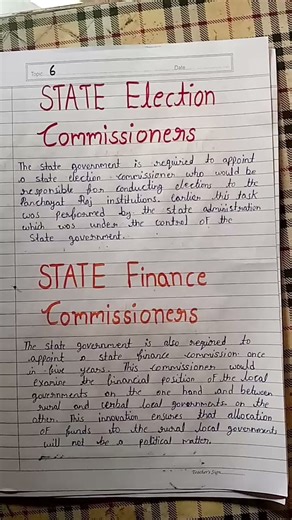 Topic 6 Date
STATE Election
Commissioners
The state government is required to appoint
a state election commissioner who would be
responsible for conducting elections to the
Panchayat Raj institutions. Earlier this task
was performed by the state administration
which was under the control of the
State government.
STATE Finance
Commissioners
The state government is also required to
appoint a state finance commission once
in five years. This commissioner would
examine the financial position of the local
governments on the one hand and between
rural and verbal local governments on the
other. This innovation ensures that allocation
of funds to the rural local governments
will not be a political matter.
Teacher's Sign